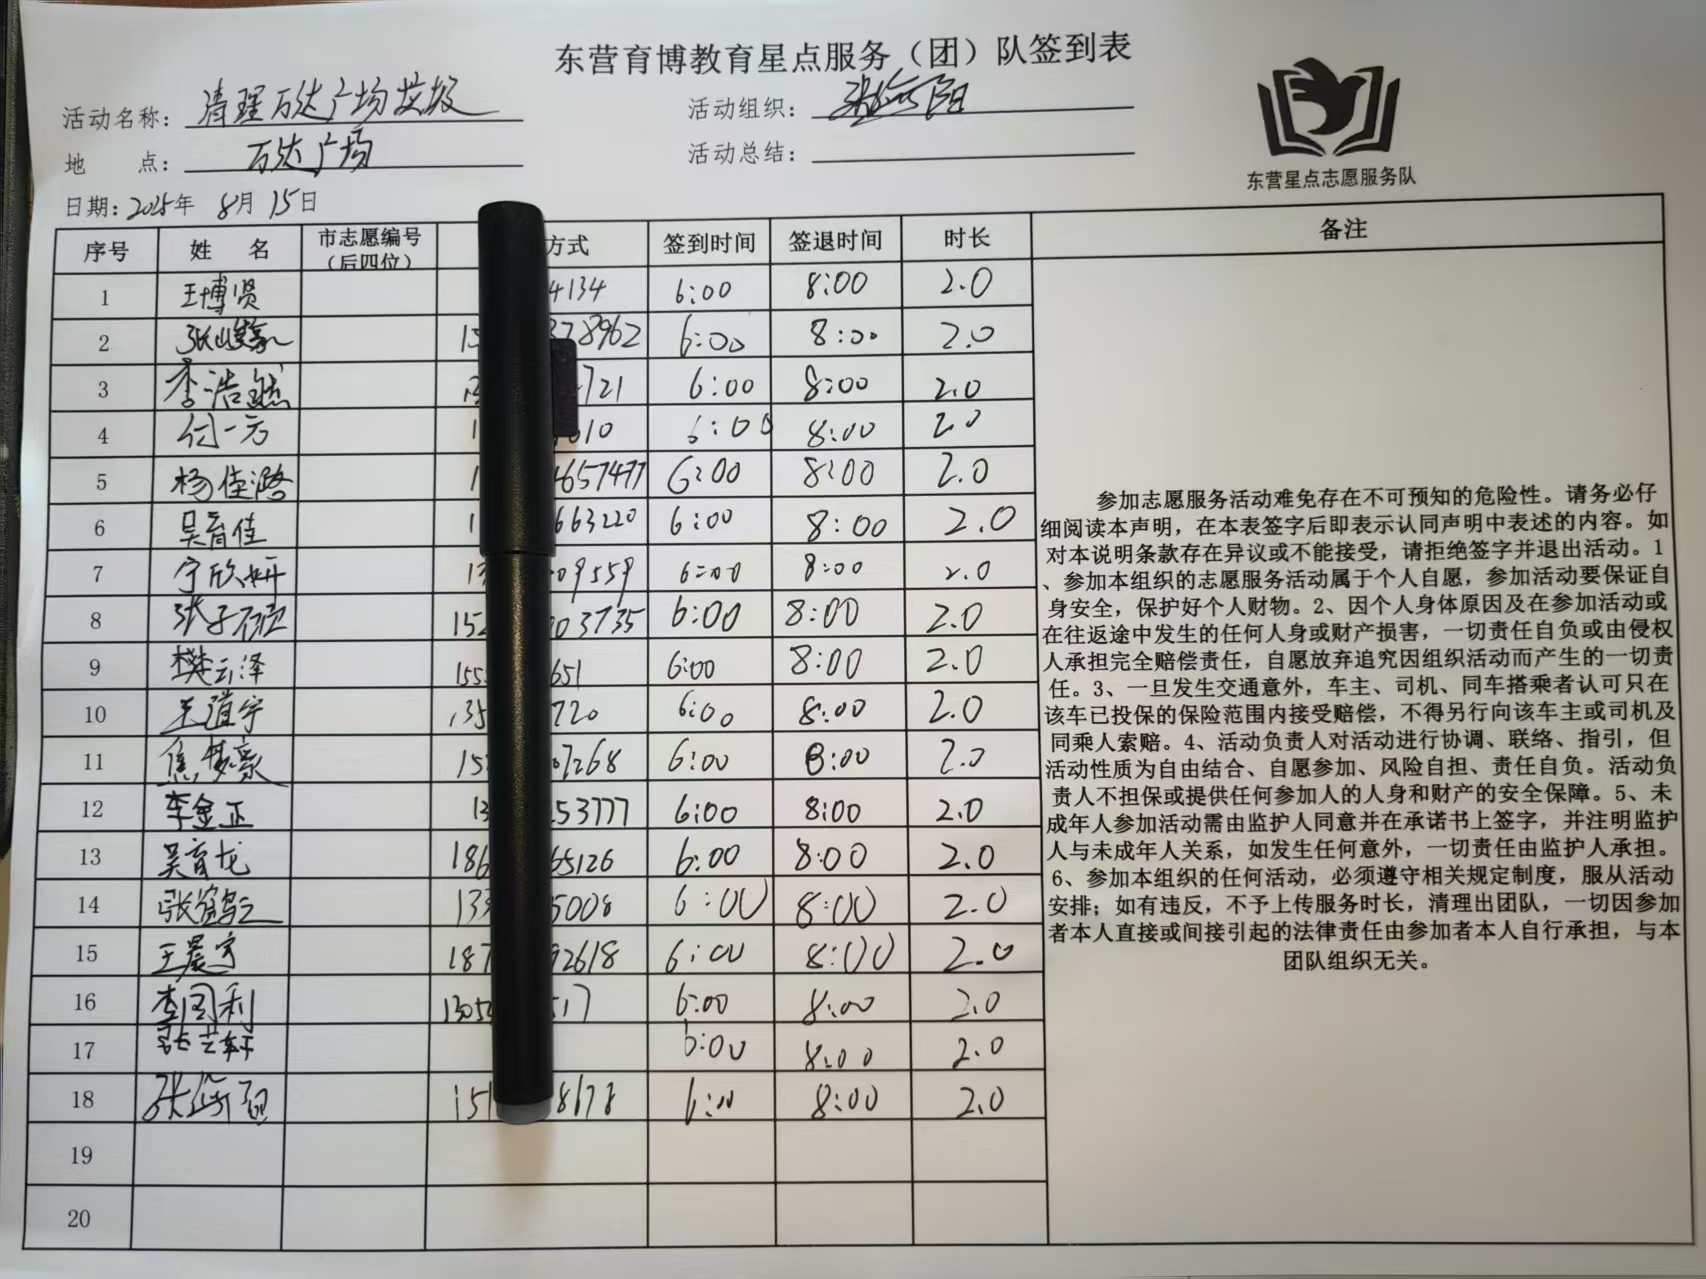 东营育博教育星点服务（团）队签到表
活动名称：清理万达广场垃圾 活动组织：
地 点：万达广场 活动总结：
东营星点志愿服务队
日期：2025年 8月 15日
序号 姓 名 市志愿编号（后四位） 方式 签到时间 签退时间 时长 备注
1 王博贤 4134 6:00 8:00 2.0
2 15 378962 6:00 8:00 2.0
3 李浩然 721 6:00 8:00 2.0
4 付一方 1 010 6:00 8:00 2.0
5 杨佳潞 1 4657477 6:00 8:00 2.0
6 吴育佳 1 663220 6:00 8:00 2.0
7 宁欣妍 13 09559 6:00 8:00 2.0
8 张子硕 152 03735 6:00 8:00 2.0
9 樊云泽 155 651 6:00 8:00 2.0
10 王道宇 135 720 6:00 8:00 2.0
11 焦梦豪 15 07268 6:00 8:00 2.0
12 李金正 13 253777 6:00 8:00 2.0
13 吴育龙 186 65126 6:00 8:00 2.0
14 133 5008 6:00 8:00 2.0
15 王晨宇 187 92618 6:00 8:00 2.0
16 李国利 1305 517 6:00 8:00 2.0
17 张艺轩 6:00 8:00 2.0
18 151 8678 6:00 8:00 2.0
19
20
参加志愿服务活动难免存在不可预知的危险性。请务必仔
细阅读本声明，在本表签字后即表示认同声明中表述的内容。如
对本说明条款存在异议或不能接受，请拒绝签字并退出活动。1
、参加本组织的志愿服务活动属于个人自愿，参加活动要保证自
身安全，保护好个人财物。2、因个人身体原因及在参加活动或
在往返途中发生的任何人身或财产损害，一切责任自负或由侵权
人承担完全赔偿责任，自愿放弃追究因组织活动而产生的一切责
任。3、一旦发生交通意外，车主、司机、同车搭乘者认可只在
该车已投保的保险范围内接受赔偿，不得另行向该车主或司机及
同乘人索赔。4、活动负责人对活动进行协调、联络、指引，但
活动性质为自由结合、自愿参加、风险自担、责任自负。活动负
责人不担保或提供任何参加人的人身和财产的安全保障。5、未
成年人参加活动需由监护人同意并在承诺书上签字，并注明监护
人与未成年人关系，如发生任何意外，一切责任由监护人承担。
6、参加本组织的任何活动，必须遵守相关规定制度，服从活动
安排；如有违反，不予上传服务时长，清理出团队，一切因参加
者本人直接或间接引起的法律责任由参加者本人自行承担，与本
团队组织无关。